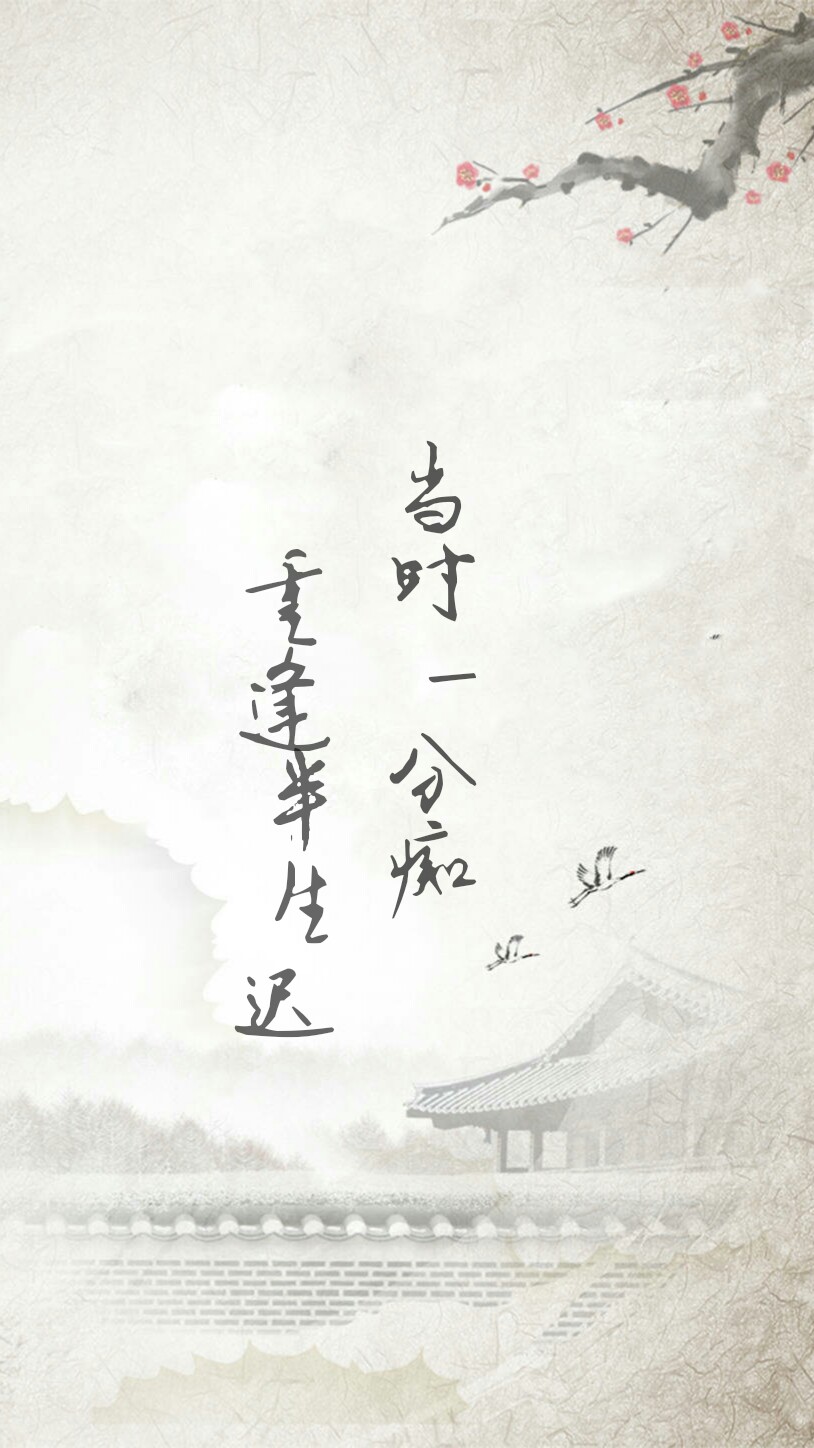 当时一分痴
重逢半生迟